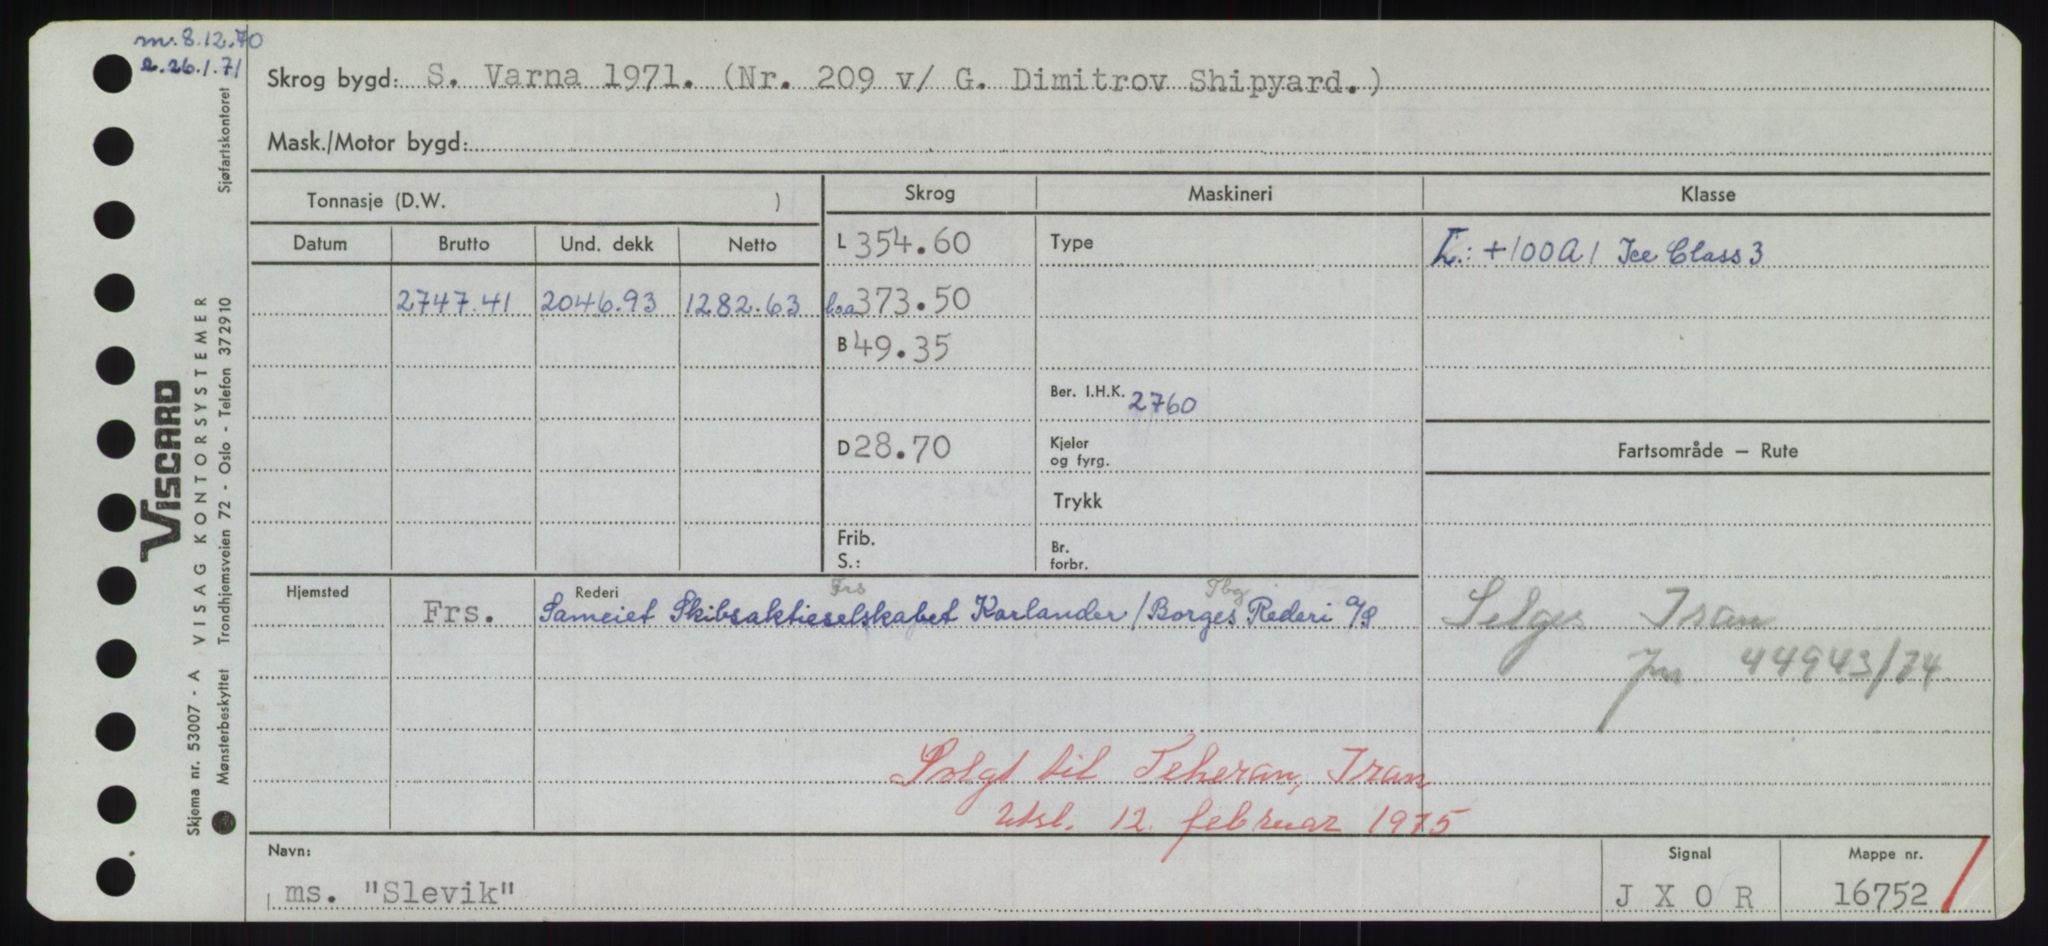 m. 8.12.70
e. 26.1.71
Skrog bygd: S. Varna 1971. (Nr. 209 v/ G. Dimitrov Shipyard.)
Mask./Motor bygd:
Tonnasje (D.W. )
Skrog
Maskineri
Klasse
Datum
Brutto
Und. dekk
Netto
L 354.60
Type
L: +100A1 Ice Class 3
2747.41
2046.93
1282.63
loa 373.50
B 49.35
Ber. I.H.K. 2760
D 28.70
Kjeler
og fyrg.
Fartsområde – Rute
Trykk
Frib.
S.:
Br.
forbr.
Hjemsted
Frs.
Rederi
Frs
Tbg
Sameiet Skibsaktieselskabet Karlander/Borges Rederi A/S
Selges Iran
Jnr. 44943/74
Solgt til Teheran, Iran
Utsl. 12. februar 1975
Navn:
ms. "Slevik"
Signal
J X O R
Mappe nr.
16752
Sjøfartskontoret
VISCARD
VISAG KONTORSYSTEMER
Trondhjemsveien 72 - Oslo - Telefon 372910
Skjema nr. 53007 - A
Mønsterbeskyttet